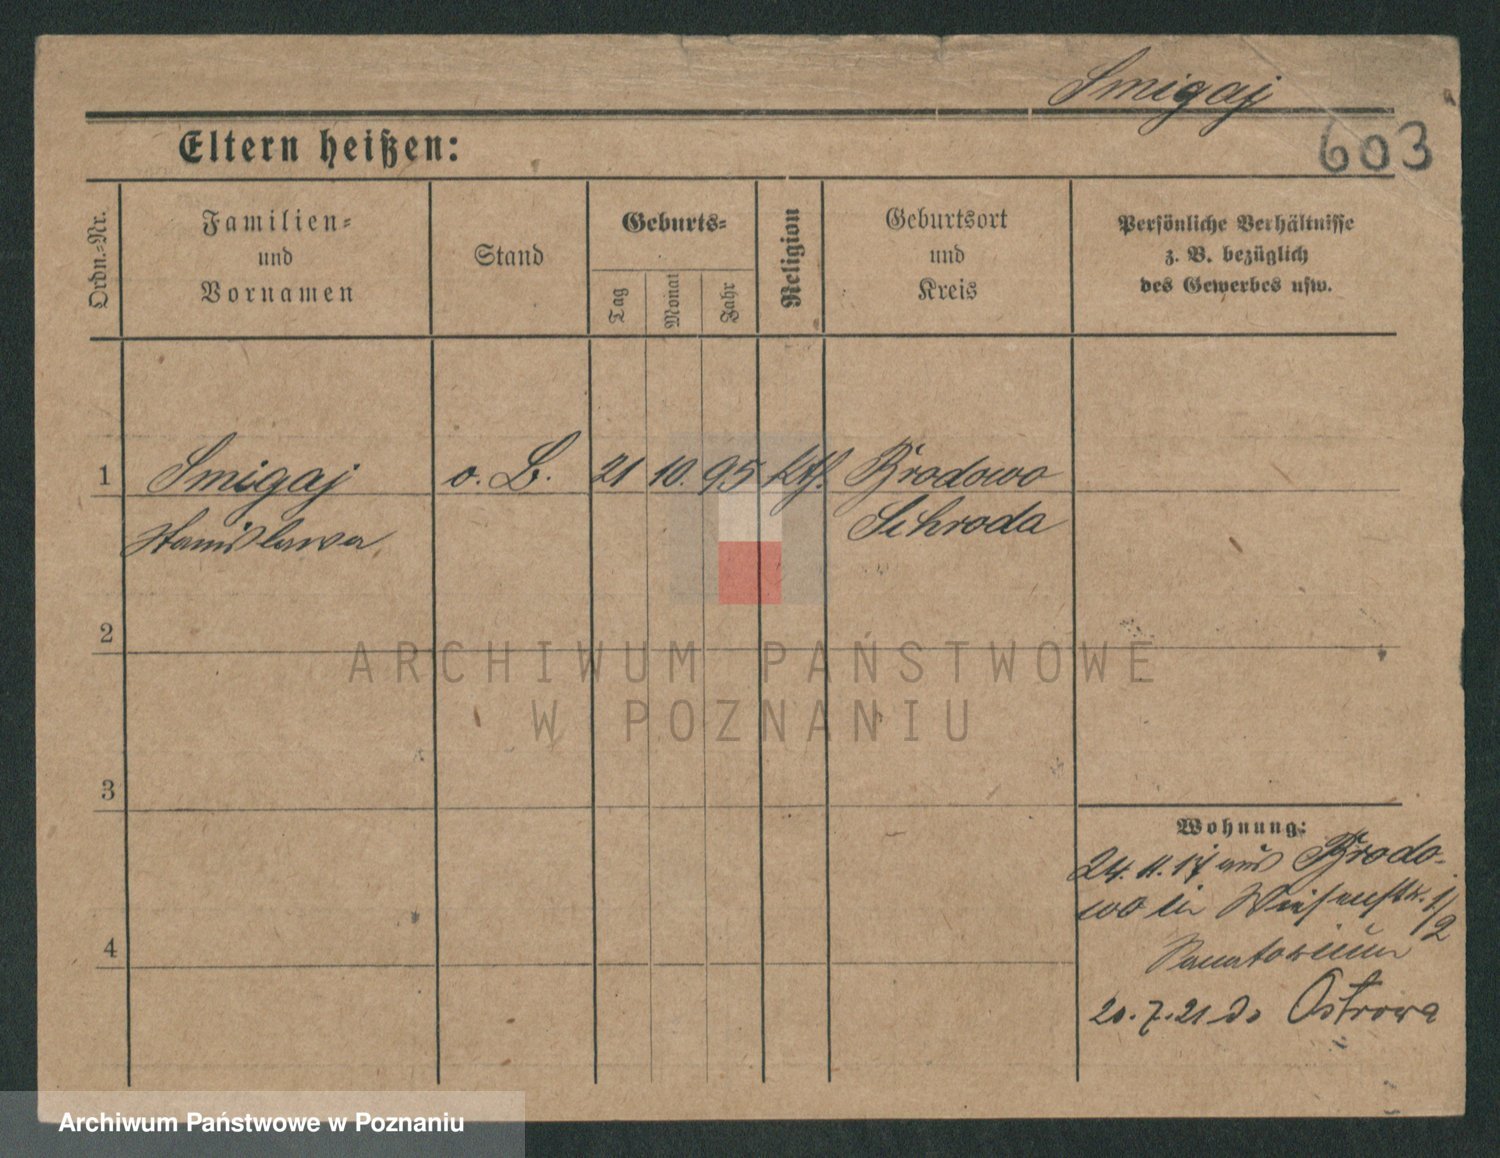 Smigaj
603
Eltern heißen:
Ordn.-Nr.
Familien-
und
Vornamen
Stand
Geburts-
Tag
Monat
Jahr
Religion
Geburtsort
und
Kreis
Persönliche Verhältnisse
z. B. bezüglich
des Gewerbes usw.
1 Smigaj o. B. 21 10. 95 Kth. Brodowo
Stanislawa Schroda
2
ARCHIWUM PAŃSTWOWE
W POZNANIU
3
Wohnung:
24. 11. 17 aus Brodo-
wo in Wiesenstr. 1/2
Sanatorium
4
20. 7. 21 do Ostrowa
Archiwum Państwowe w Poznaniu